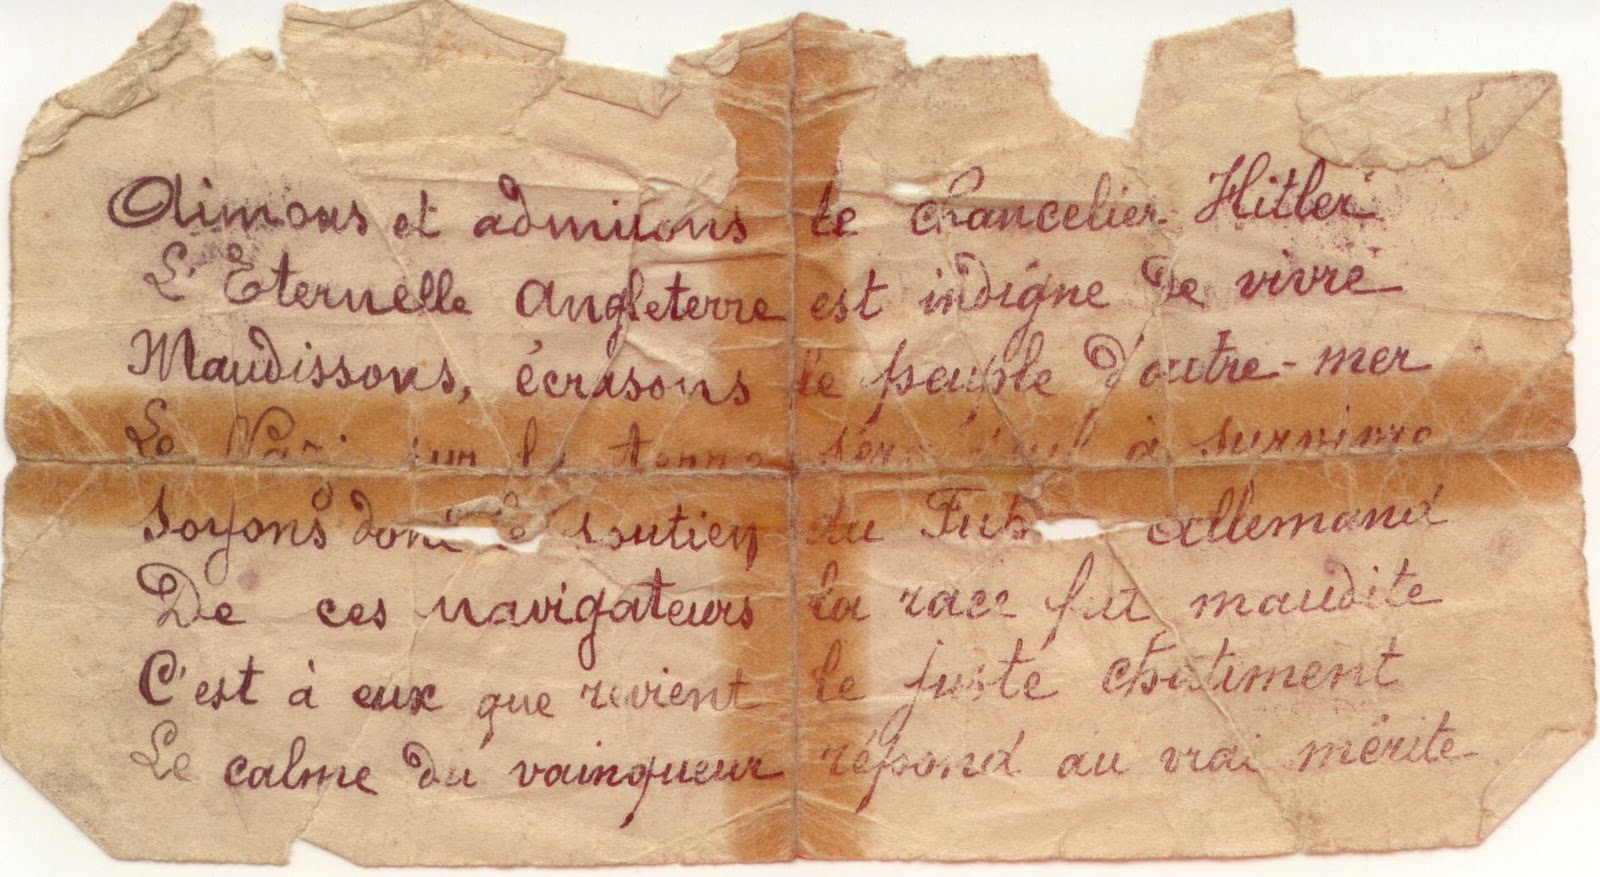 Aimons et admirons le chancelier Hitler
L'Eternelle Angleterre est indigne de vivre
Maudissons, écrasons le peuple d'outre-mer
Le Nazi sur la terre sera seul à survivre
Soyons donc le soutien du Allemand
De ces navigateurs la race fut maudite
C'est à eux que revient le juste chatiment
Le calme du vainqueur répond au vrai mérite